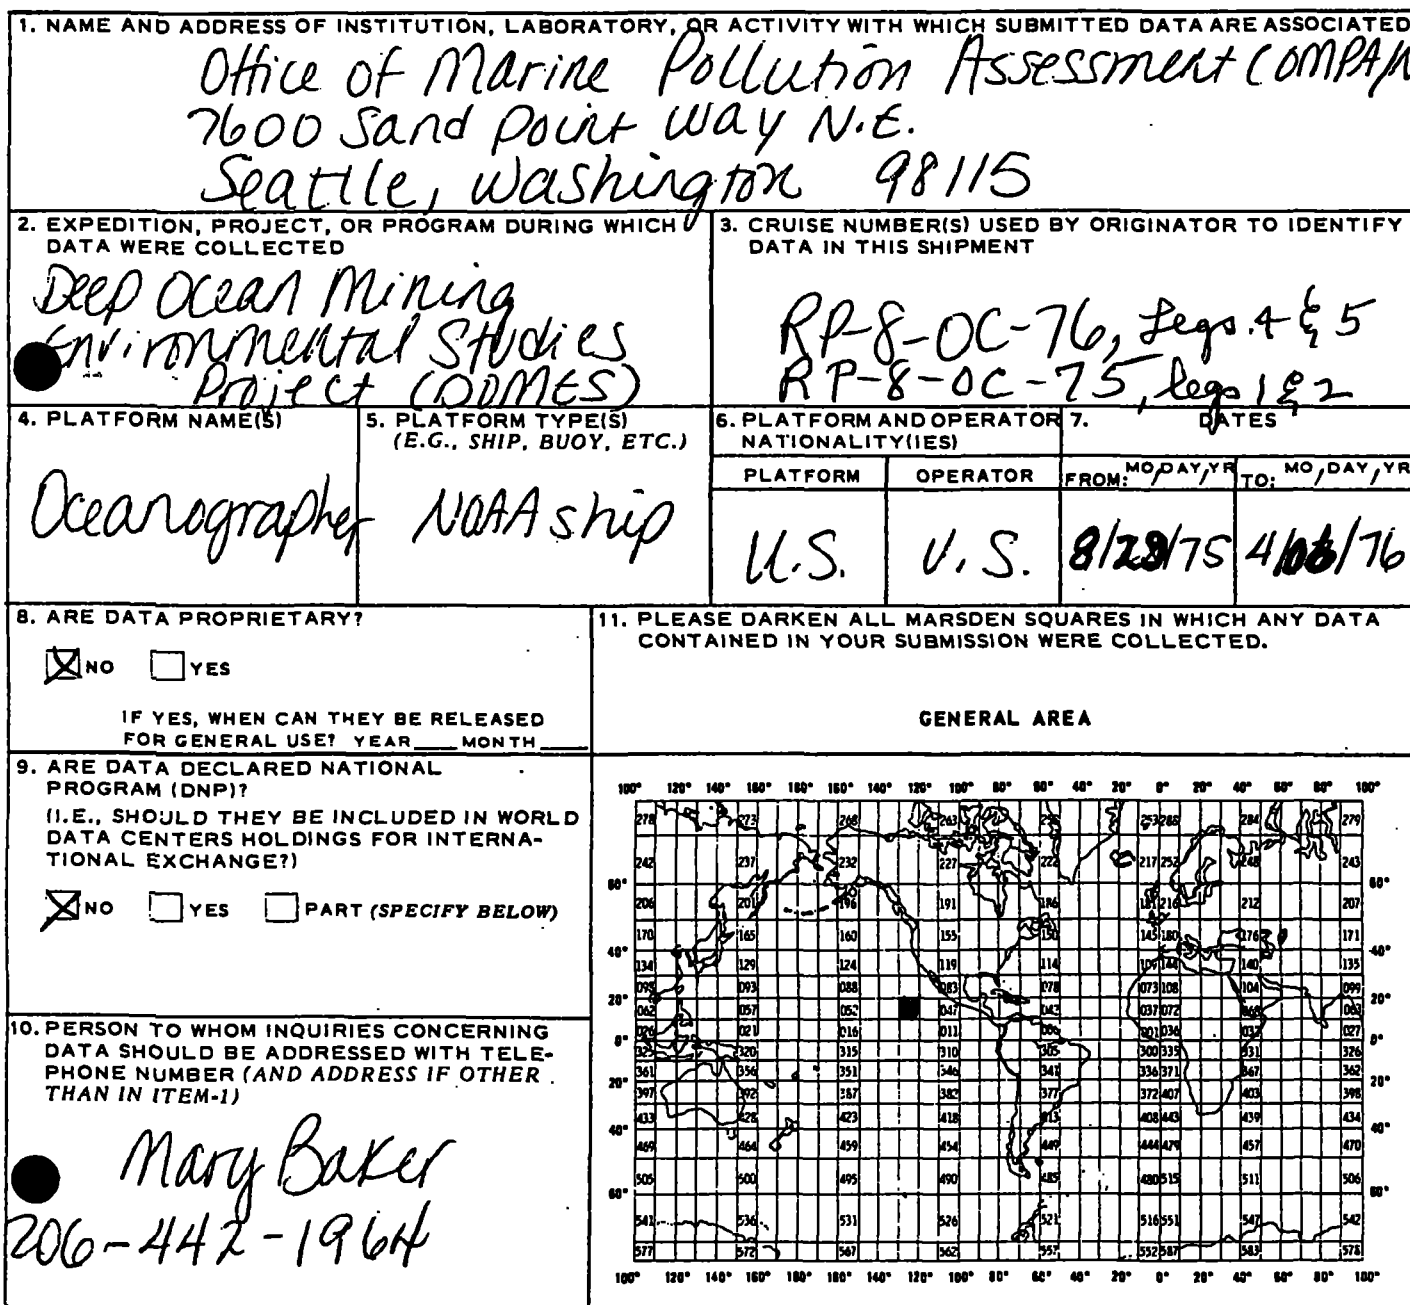 1. NAME AND ADDRESS OF INSTITUTION, LABORATORY, OR ACTIVITY WITH WHICH SUBMITTED DATA ARE ASSOCIATED
Office of Marine Pollution Assessment (OMPA/N
7600 Sand Point Way N.E.
Seattle, Washington 98115
2. EXPEDITION, PROJECT, OR PROGRAM DURING WHICH
DATA WERE COLLECTED
Deep Ocean Mining
Environmental Studies
Project (DOMES)
3. CRUISE NUMBER(S) USED BY ORIGINATOR TO IDENTIFY
DATA IN THIS SHIPMENT
RP-8-OC-76, Legs 4 & 5
RP-8-OC-75, legs 1 & 2
4. PLATFORM NAME(S)
Oceanographer
5. PLATFORM TYPE(S)
(E.G., SHIP, BUOY, ETC.)
NOAA ship
6. PLATFORM AND OPERATOR
NATIONALITY(IES)
PLATFORM OPERATOR
U.S. U.S.
7. DATES
FROM: MO/DAY/YR TO: MO/DAY/YR
8/28/75 4/06/76
8. ARE DATA PROPRIETARY?
NO YES
IF YES, WHEN CAN THEY BE RELEASED
FOR GENERAL USE? YEAR____ MONTH____
9. ARE DATA DECLARED NATIONAL
PROGRAM (DNP)?
(I.E., SHOULD THEY BE INCLUDED IN WORLD
DATA CENTERS HOLDINGS FOR INTERNA-
TIONAL EXCHANGE?)
NO YES PART (SPECIFY BELOW)
10. PERSON TO WHOM INQUIRIES CONCERNING
DATA SHOULD BE ADDRESSED WITH TELE-
PHONE NUMBER (AND ADDRESS IF OTHER
THAN IN ITEM-1)
Mary Baker
206-442-1964
11. PLEASE DARKEN ALL MARSDEN SQUARES IN WHICH ANY DATA
CONTAINED IN YOUR SUBMISSION WERE COLLECTED.
GENERAL AREA
100° 120° 140° 160° 180° 160° 140° 120° 100° 80° 60° 40° 20° 0° 20° 40° 60° 80° 100°
278 273 268 263 253 288 284 279
242 237 232 227 222 217 252 248 243
60° 60°
206 201 196 191 186 181 216 212 207
170 165 160 155 150 145 180 176 171
40° 40°
134 129 124 119 114 109 144 140 135
093 088 083 078 073 108 104 099
20° 20°
062 057 052 047 042 037 072 068 063
026 021 016 011 006 001 036 032 027
0° 0°
325 320 315 310 305 300 335 331 326
361 356 351 346 341 336 371 367 362
20° 20°
397 392 387 382 377 372 407 403 398
433 428 423 418 413 408 443 439 434
40° 40°
469 464 459 454 449 444 479 457 470
505 500 495 490 485 480 515 511 506
60° 60°
541 536 531 526 521 516 551 547 542
577 572 567 562 557 552 587 583 578
100° 120° 140° 160° 180° 160° 140° 120° 100° 80° 60° 40° 20° 0° 20° 40° 60° 80° 100°